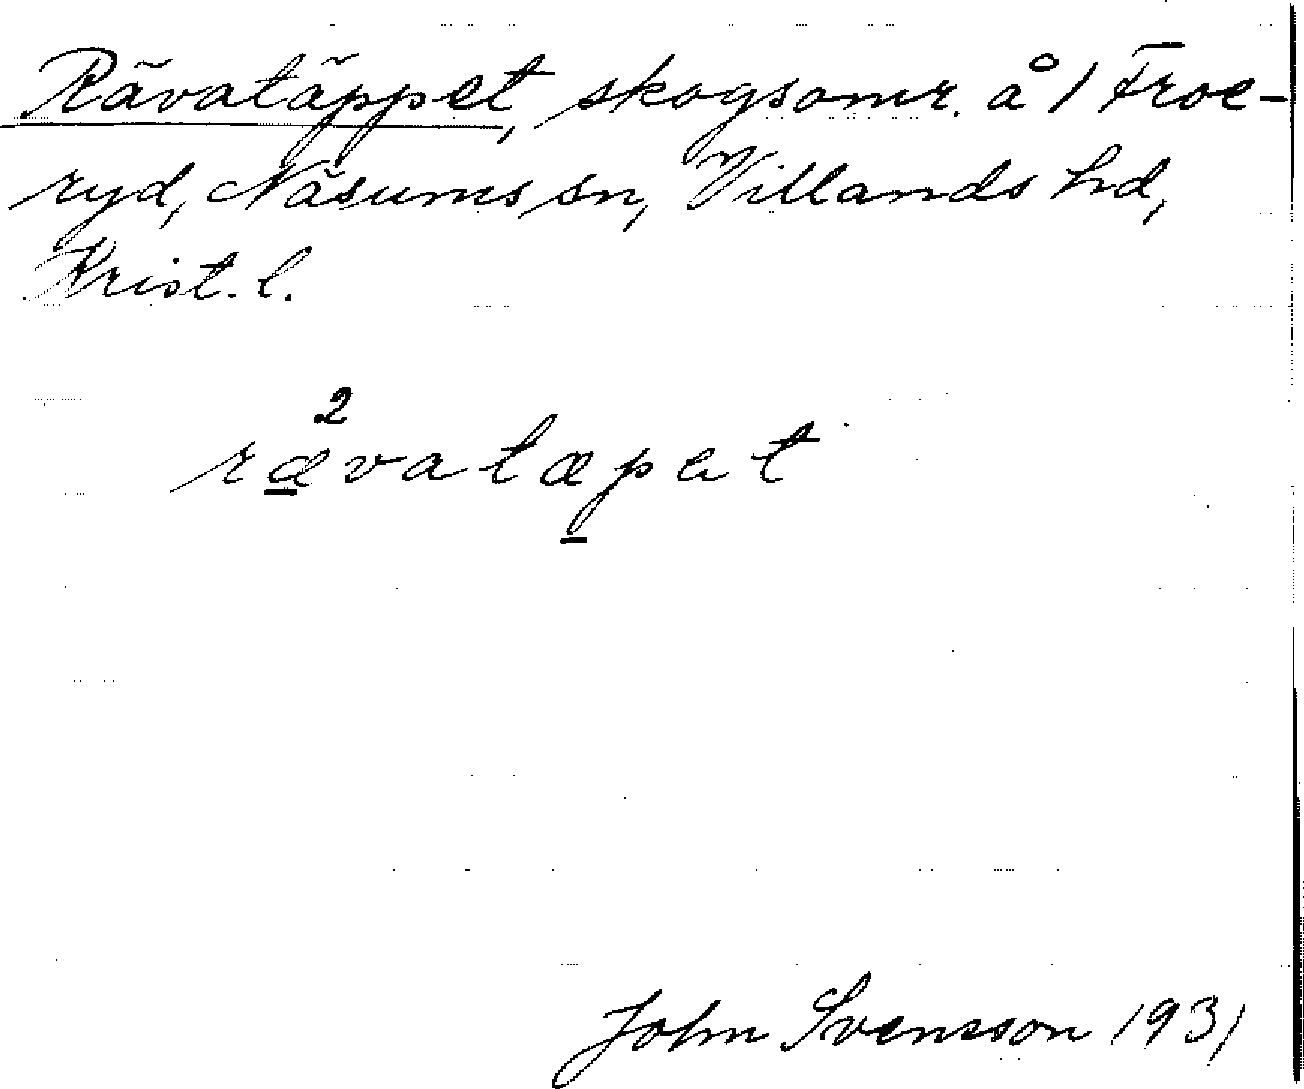 Rävatäppet, skogsomr. å 1 Froe-
ryd, Näsums sn, Villands hd,
Krist. l.
2
rævatæpət
John Svensson 1931